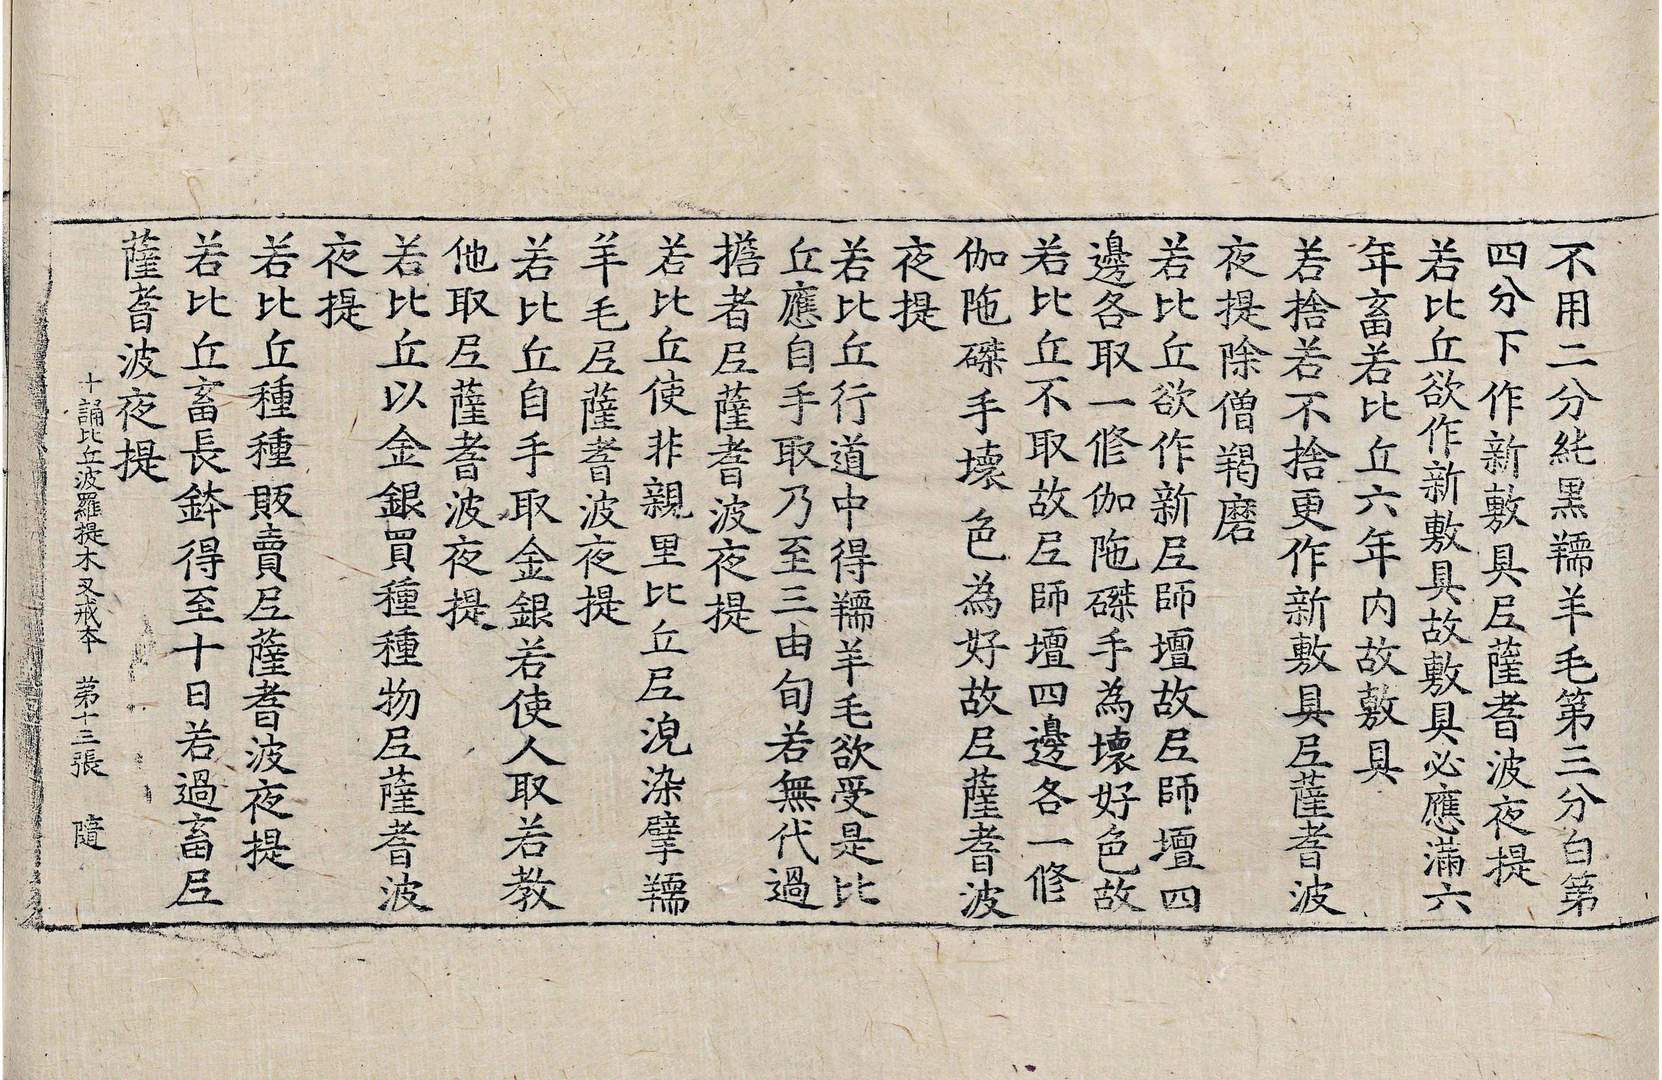 不用二分純黑羺羊毛第三分白第
四分下作新敷具尼薩耆波夜提
若比丘欲作新敷具故敷具必應滿六
年畜若比丘六年內故敷具
若捨若不捨更作新敷具尼薩耆波
夜提除僧羯磨
若比丘欲作新尼師壇故尼師壇四
邊各取一修伽陁磔手為壞好色故
若比丘不取故尼師壇四邊各一修
伽陁磔手壞色為好故尼薩耆波
夜提
若比丘行道中得羺羊毛欲受是比
丘應自手取乃至三由旬若無代過
擔者尼薩耆波夜提
若比丘使非親里比丘尼浣染擘羺
羊毛尼薩耆波夜提
若比丘自手取金銀若使人取若教
他取尼薩耆波夜提
若比丘以金銀買種種物尼薩耆波
夜提
若比丘種種販賣尼薩耆波夜提
若比丘畜長鉢得至十日若過畜尼
薩耆波夜提
十誦比丘波羅提木叉戒本 第十三張 隨